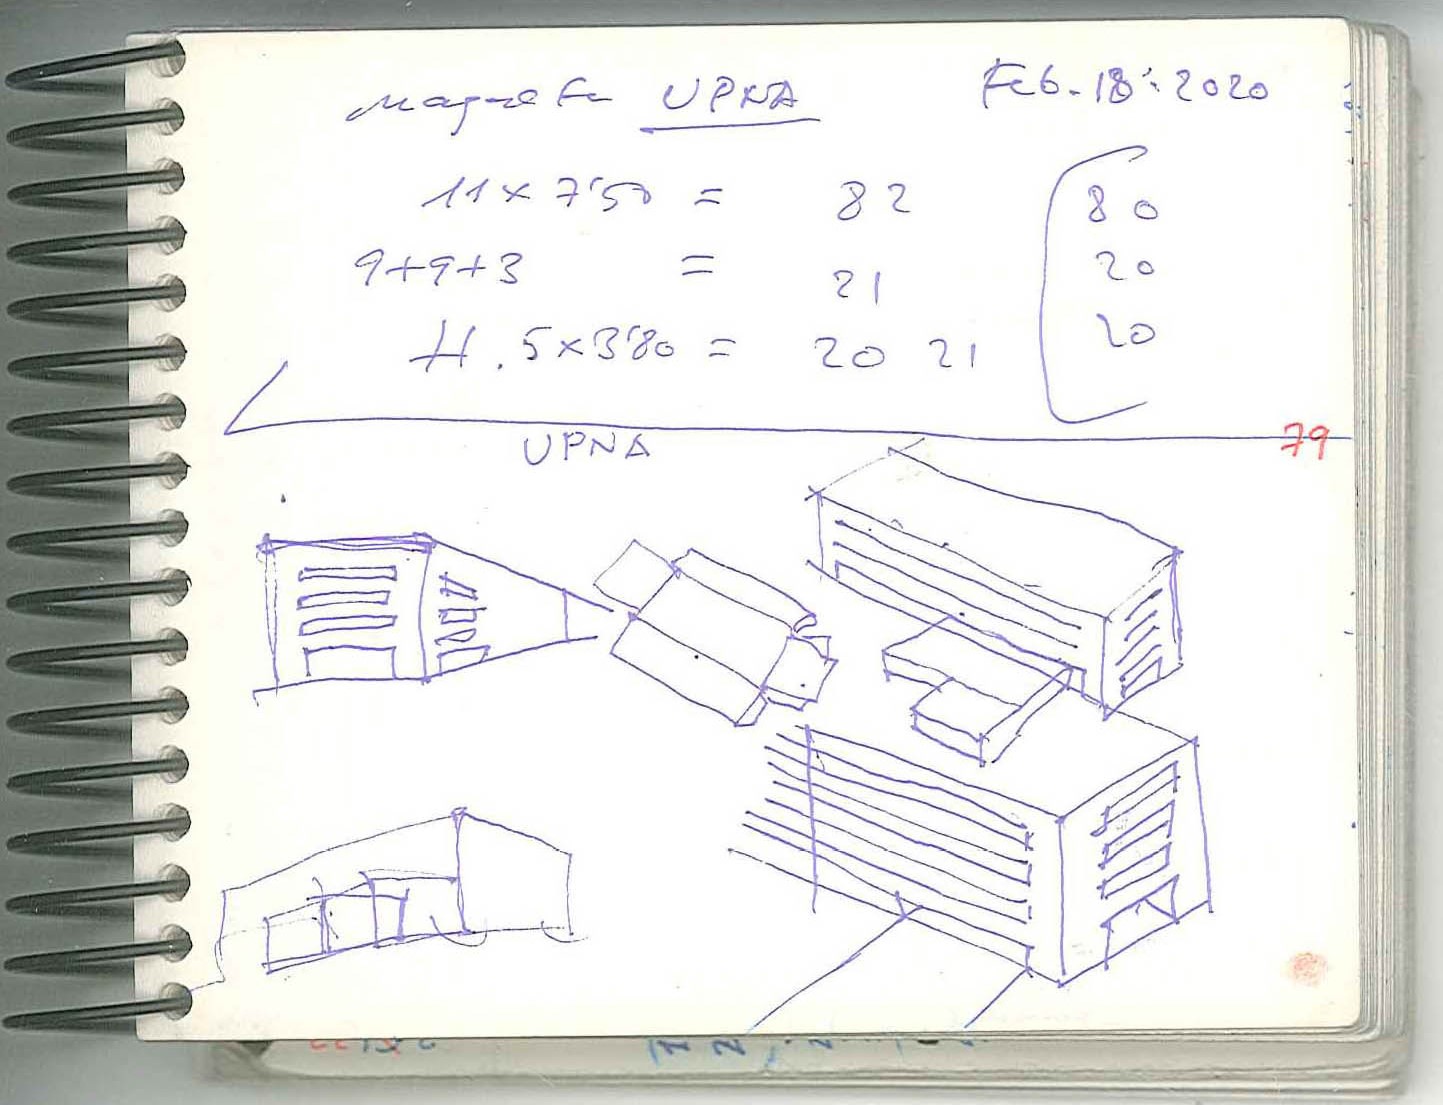 maqueta UPNA Feb. 18. 2020
11 x 7'50 = 82 80
9+9+3 = 21 20
H. 5x3'80 = 20 21 20
79
UPNA